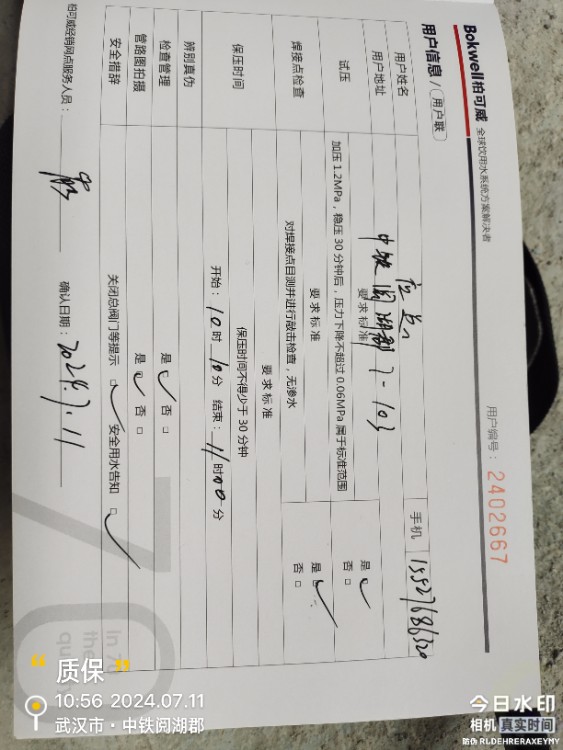 Bokwell柏可威 全球饮用水系统方案解决者
用户编号：2402667
用户信息 / 用户联
用户姓名 手机
用户地址 中铁阅湖郡 7-103
试压 要求标准
加压1.2MPa，稳压30分钟后，压力下降不超过0.06MPa属于标准范围 是□ 否□
焊接点检查 要求标准
对焊接点目测并进行敲击检查，无渗水 是□ 否□
保压时间 要求标准
保压时间不得少于30分钟
开始：10时10分 结束：11时00分
辨别真伪
检查管理 是□ 否□
管路图拍摄 是□ 否□
安全措辞 关闭总阀门等提示 □ 安全用水告知 □
柏可威经销网点服务人员： 确认日期：2024.7.11
in 7
the
qu
“质保”
10:56 2024.07.11
武汉市·中铁阅湖郡
今日水印
相机 真实时间
防伪 RLDEHRERAXEYMY